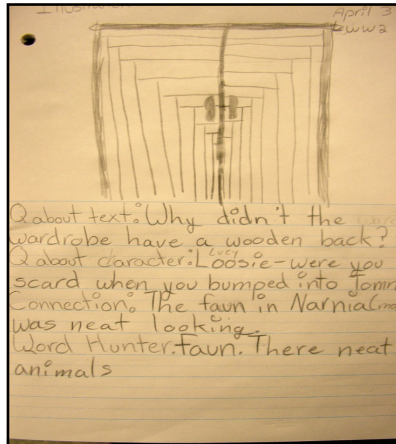 April 3
LWW2
Q about text: Why didn't the
wardrobe have a wooden back?
Lucy
Q about character: Loosie-were you
scard when you bumped into Tomn
Connection: The faun in Narnia(mo
was neat looking.
Word Hunter. Faun. There neat
animals